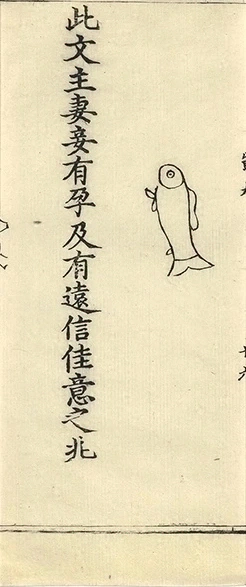 此文主妻妾有孕及有遠信佳意之兆